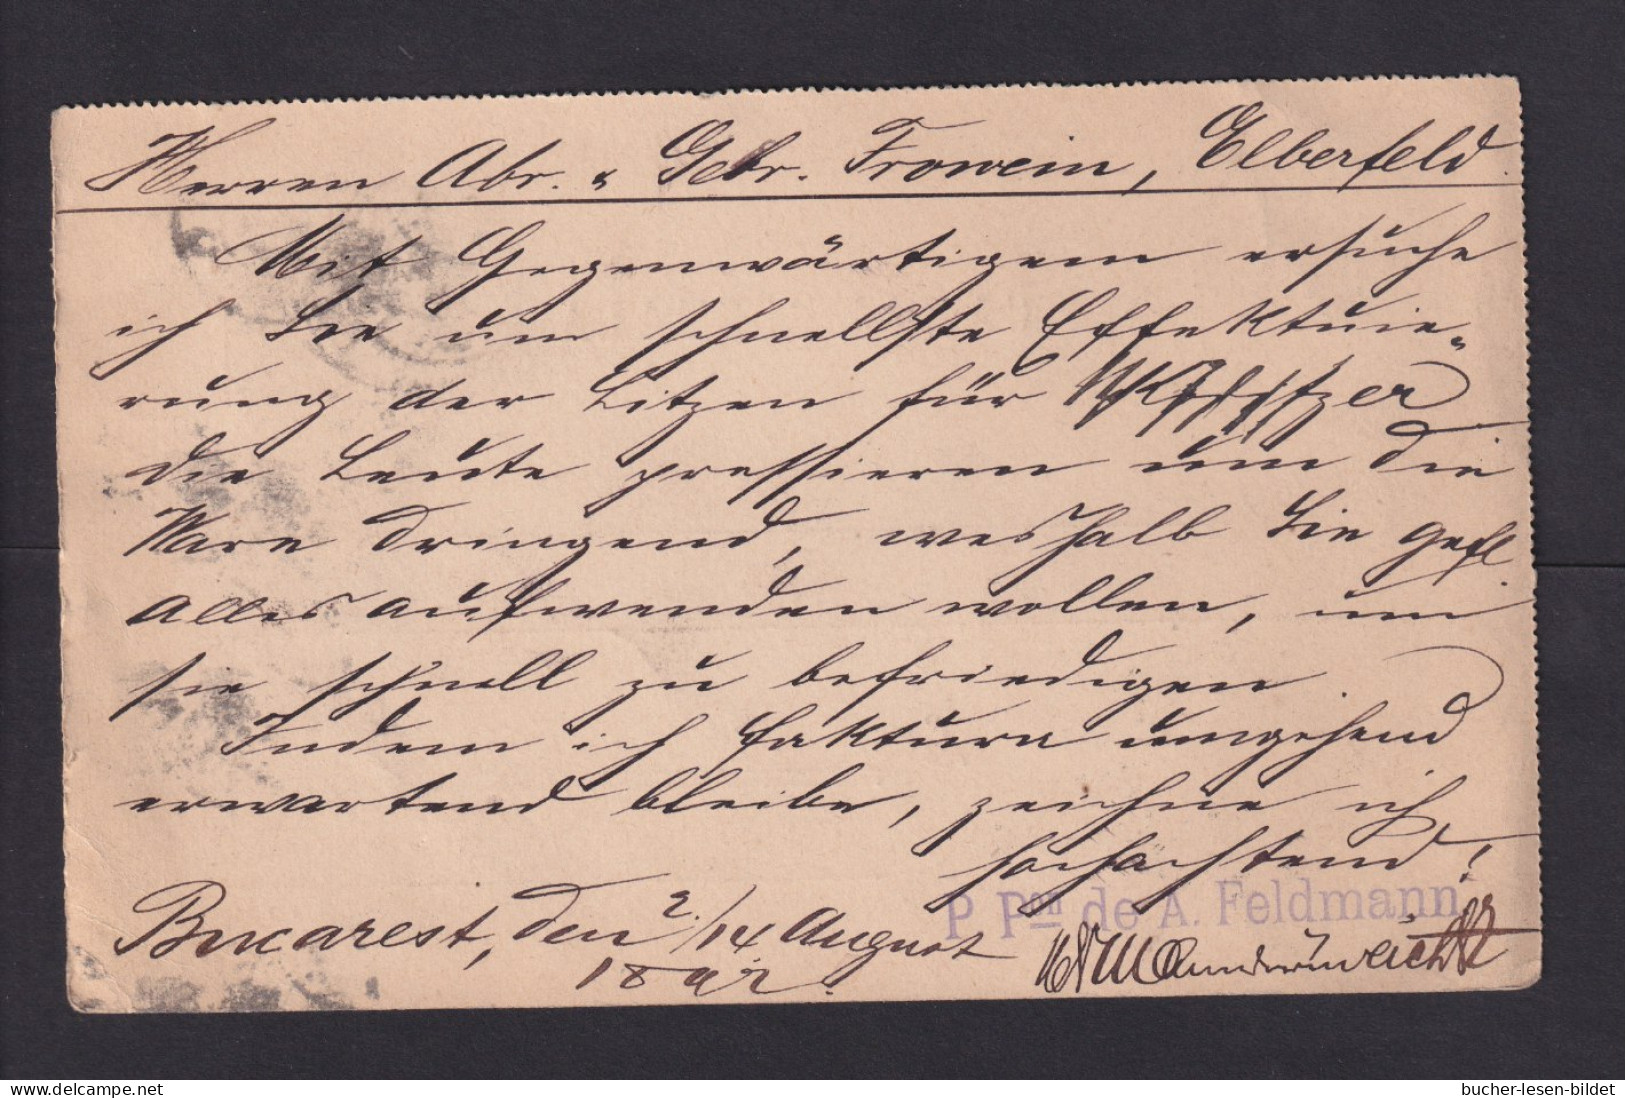 Herren Abr. & Gebr. Frowein, Elberfeld.
Mit Gegenwärtigem ersuche
ich Sie um schnellste Effektuie-
rung der Litzen für
die Leute pressieren um die
Ware dringend, weshalb Sie gefl.
Alles aufwenden wollen, um
sie schnell zu befriedigen.
Indem ich Faktura umgehend
erwartend bleibe, zeichne ich
hochachtend!
P. Pon de A. Feldmann
Bucarest, den 2./14 August
1892.
bucher-lesen-bildet
delcampe.net